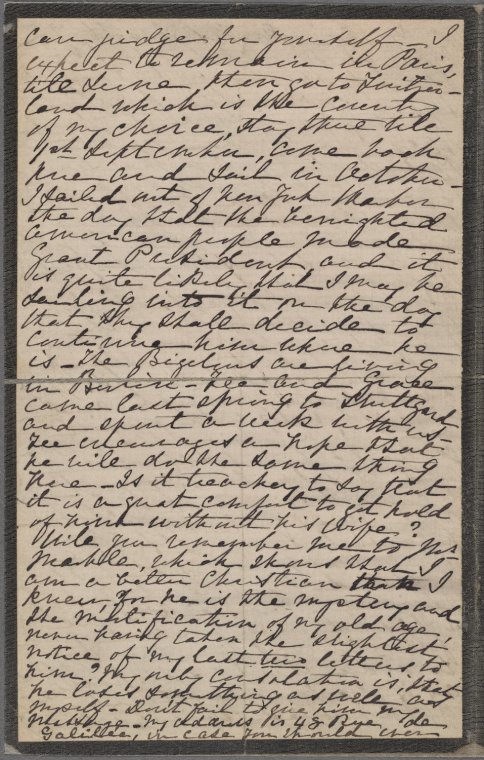 can judge for yourself – I
expect to remain in Paris,
till June, then go to Switzer-
land which is the country
of my choice, stay there till
1st September, come back
here and sail in October –
I sailed out of New York Harbor
the day that the benighted
American people made
Grant President and it
is quite likely that I may be
sailing into it on the day
that they shall decide to
continue him where he
is – The Bigelows are living
in Berlin – and Grace
came last spring to Stuttgard
and spent a week with us,
encourages a hope that
he will do the same thing
here – Is it treachery to say that
it is a great comfort to get hold
of him without his wife?
Will you remember me to Mr
Marble, which shows that I
am a better Christian than I
knew, for he is the mystery and
the mortification of my old age,
never having taken the slightest
notice of my last two letters to
him? My only consolation is, that
he loses something as well as
myself – Don't fail to give him my
message – My address is 48 Rue de
Galilée, in case you should ever